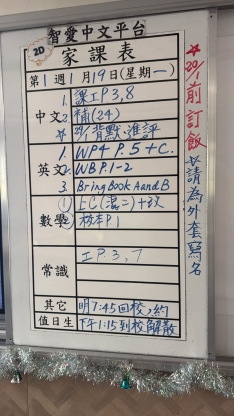 智愛中文平台
2D
家課表
第1週1月19日(星期一)
中文
1. 課工P3,8
2. 補(24)
☆ 29/1背默,準評
英文
1. WP4 P.5 + C.
2. WB P.1-2
3. Bring Book A and B
數學
① 上C(混二)+改
② 校本P1
常識
工P.3,7
其它
明7:45回校,約
值日生
下午1:15到校解散
☆29/1前訂飯
☆請為外套寫名